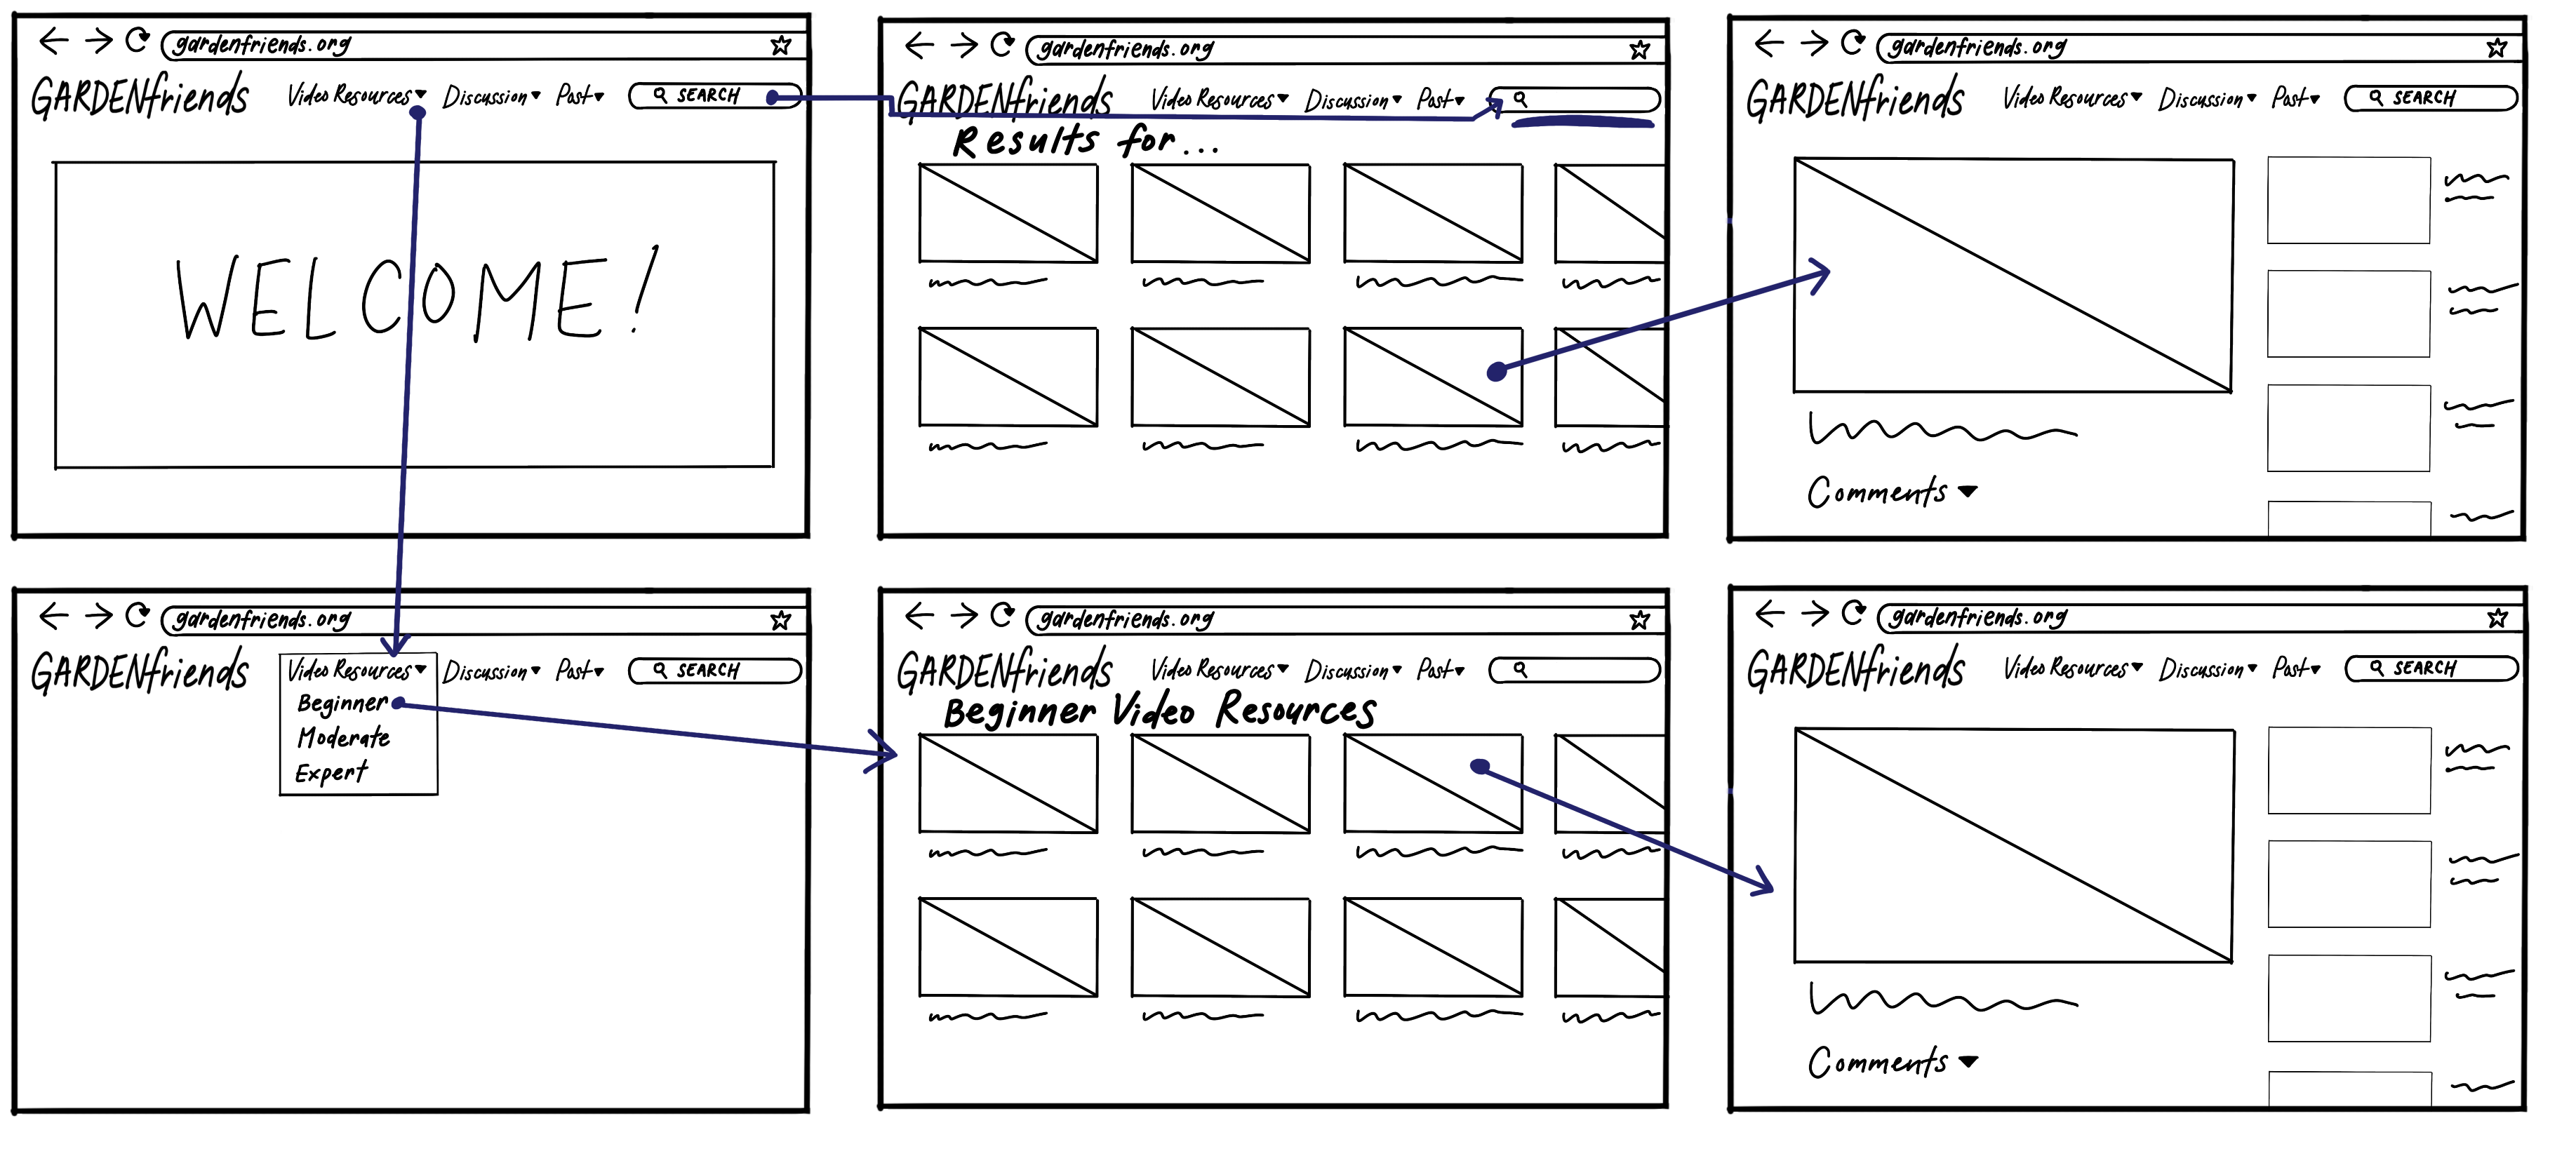 gardenfriends.org
GARDENfriends Video Resources Discussion Past SEARCH
WELCOME!
gardenfriends.org
GARDENfriends Video Resources Discussion Past
Results for...
gardenfriends.org
GARDENfriends Video Resources Discussion Past SEARCH
Comments
gardenfriends.org
GARDENfriends Video Resources Discussion Past SEARCH
Beginner
Moderate
Expert
gardenfriends.org
GARDENfriends Video Resources Discussion Past
Beginner Video Resources
gardenfriends.org
GARDENfriends Video Resources Discussion Past SEARCH
Comments